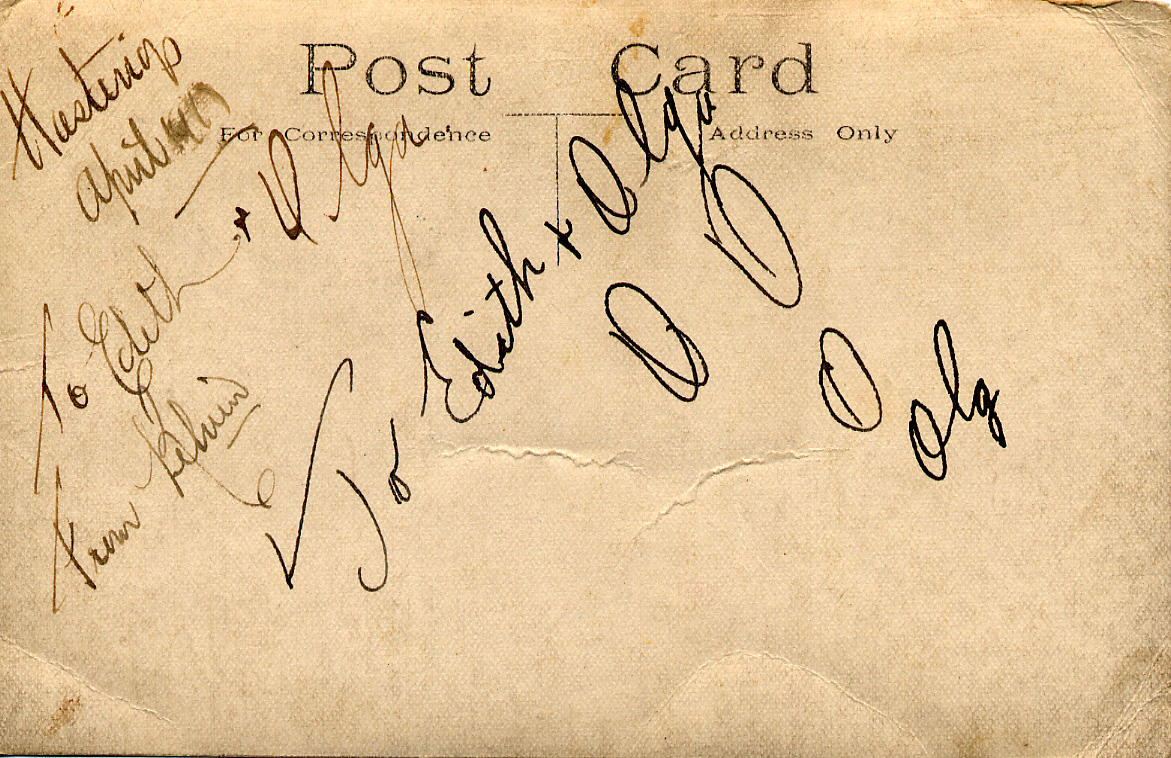 Post Card
For Correspondence Address Only
Hastings
April
To Edith + Olga.
From Kelvin
To Edith + Olga
O O
O Olg